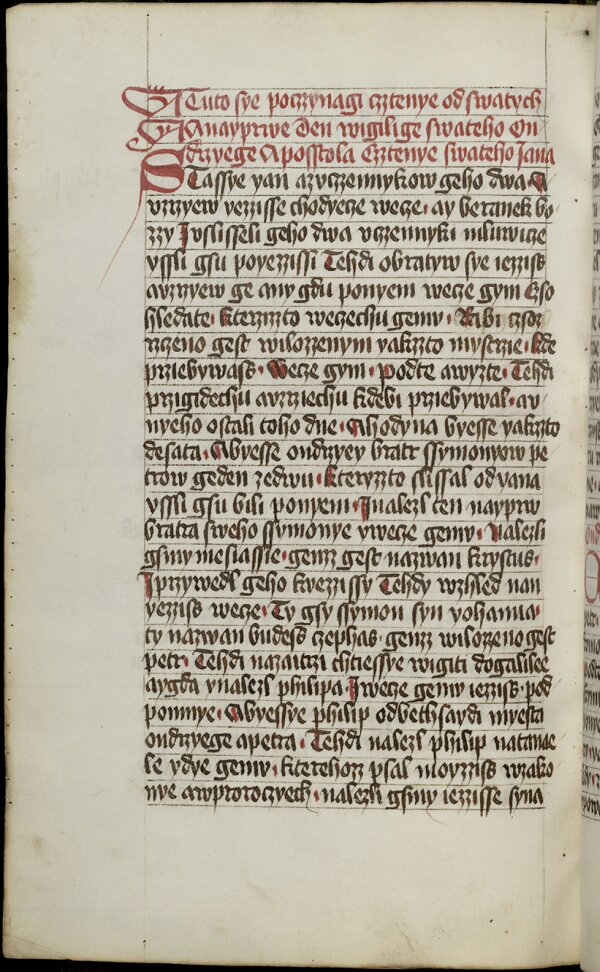 Tuto sye poczynagi cztenye od swatych
A nayprwe Den wigilige swateho On
drzyege Aposstola Cztenye swateho Jana
Stassye yan azvczennykow geho dwa A
vzrzyew yezzisse chodyecze wecze · ay beranek bo
zzy Jvslisseli geho dwa vczennyki mluwicze
yssli gsu poyezzissi Tehdi obratyw sye iezziss
avzrzyew ge any gdu ponyem wecze gym Czso
hledate · kterzzto wecechu gemv · Rabi czsoz
rzczeno gest wilozzenym yakzzto mystrzie · kde
prziebywass · Wecze gym · podte awyzte · Tehdi
przigidechu avzrziechu kdebi prziebywal · av
nyeho ostali toho dne · Ahodyna byesse yakzzto
desata · Abyesse ondrzyey bratr ssymonyow pe
trow geden zedwu · kteryzto slissal odyana
yssli gsu bili ponyem · Jnalezl ten nayprw
bratra sweho ssymonye ywecze gemv · Nalezli
gsmy mesiassie · genz gest nazwan krystus ·
Jprzywedl geho kyezzissy Tehdy wzhled nan
yezziss wecze · Ty gsy ssymon syn yohanna ·
ty nazwan budess czephas · genzz wilozzeno gest
petr · Tehdi nazaitrzi chtiessye wigiti dogalilee
aygda ynalezl philipa · Jwecze gemv iezziss · pod
ponmye · Abyessye philip odbethsaydi myesta
ondrzyege apetra · Tehdi nalezl philip natanae
le ydye gemv · kterehozz psal moyzziss wzako
nye awproroczyech · nalezli gsmy iezzisse syna